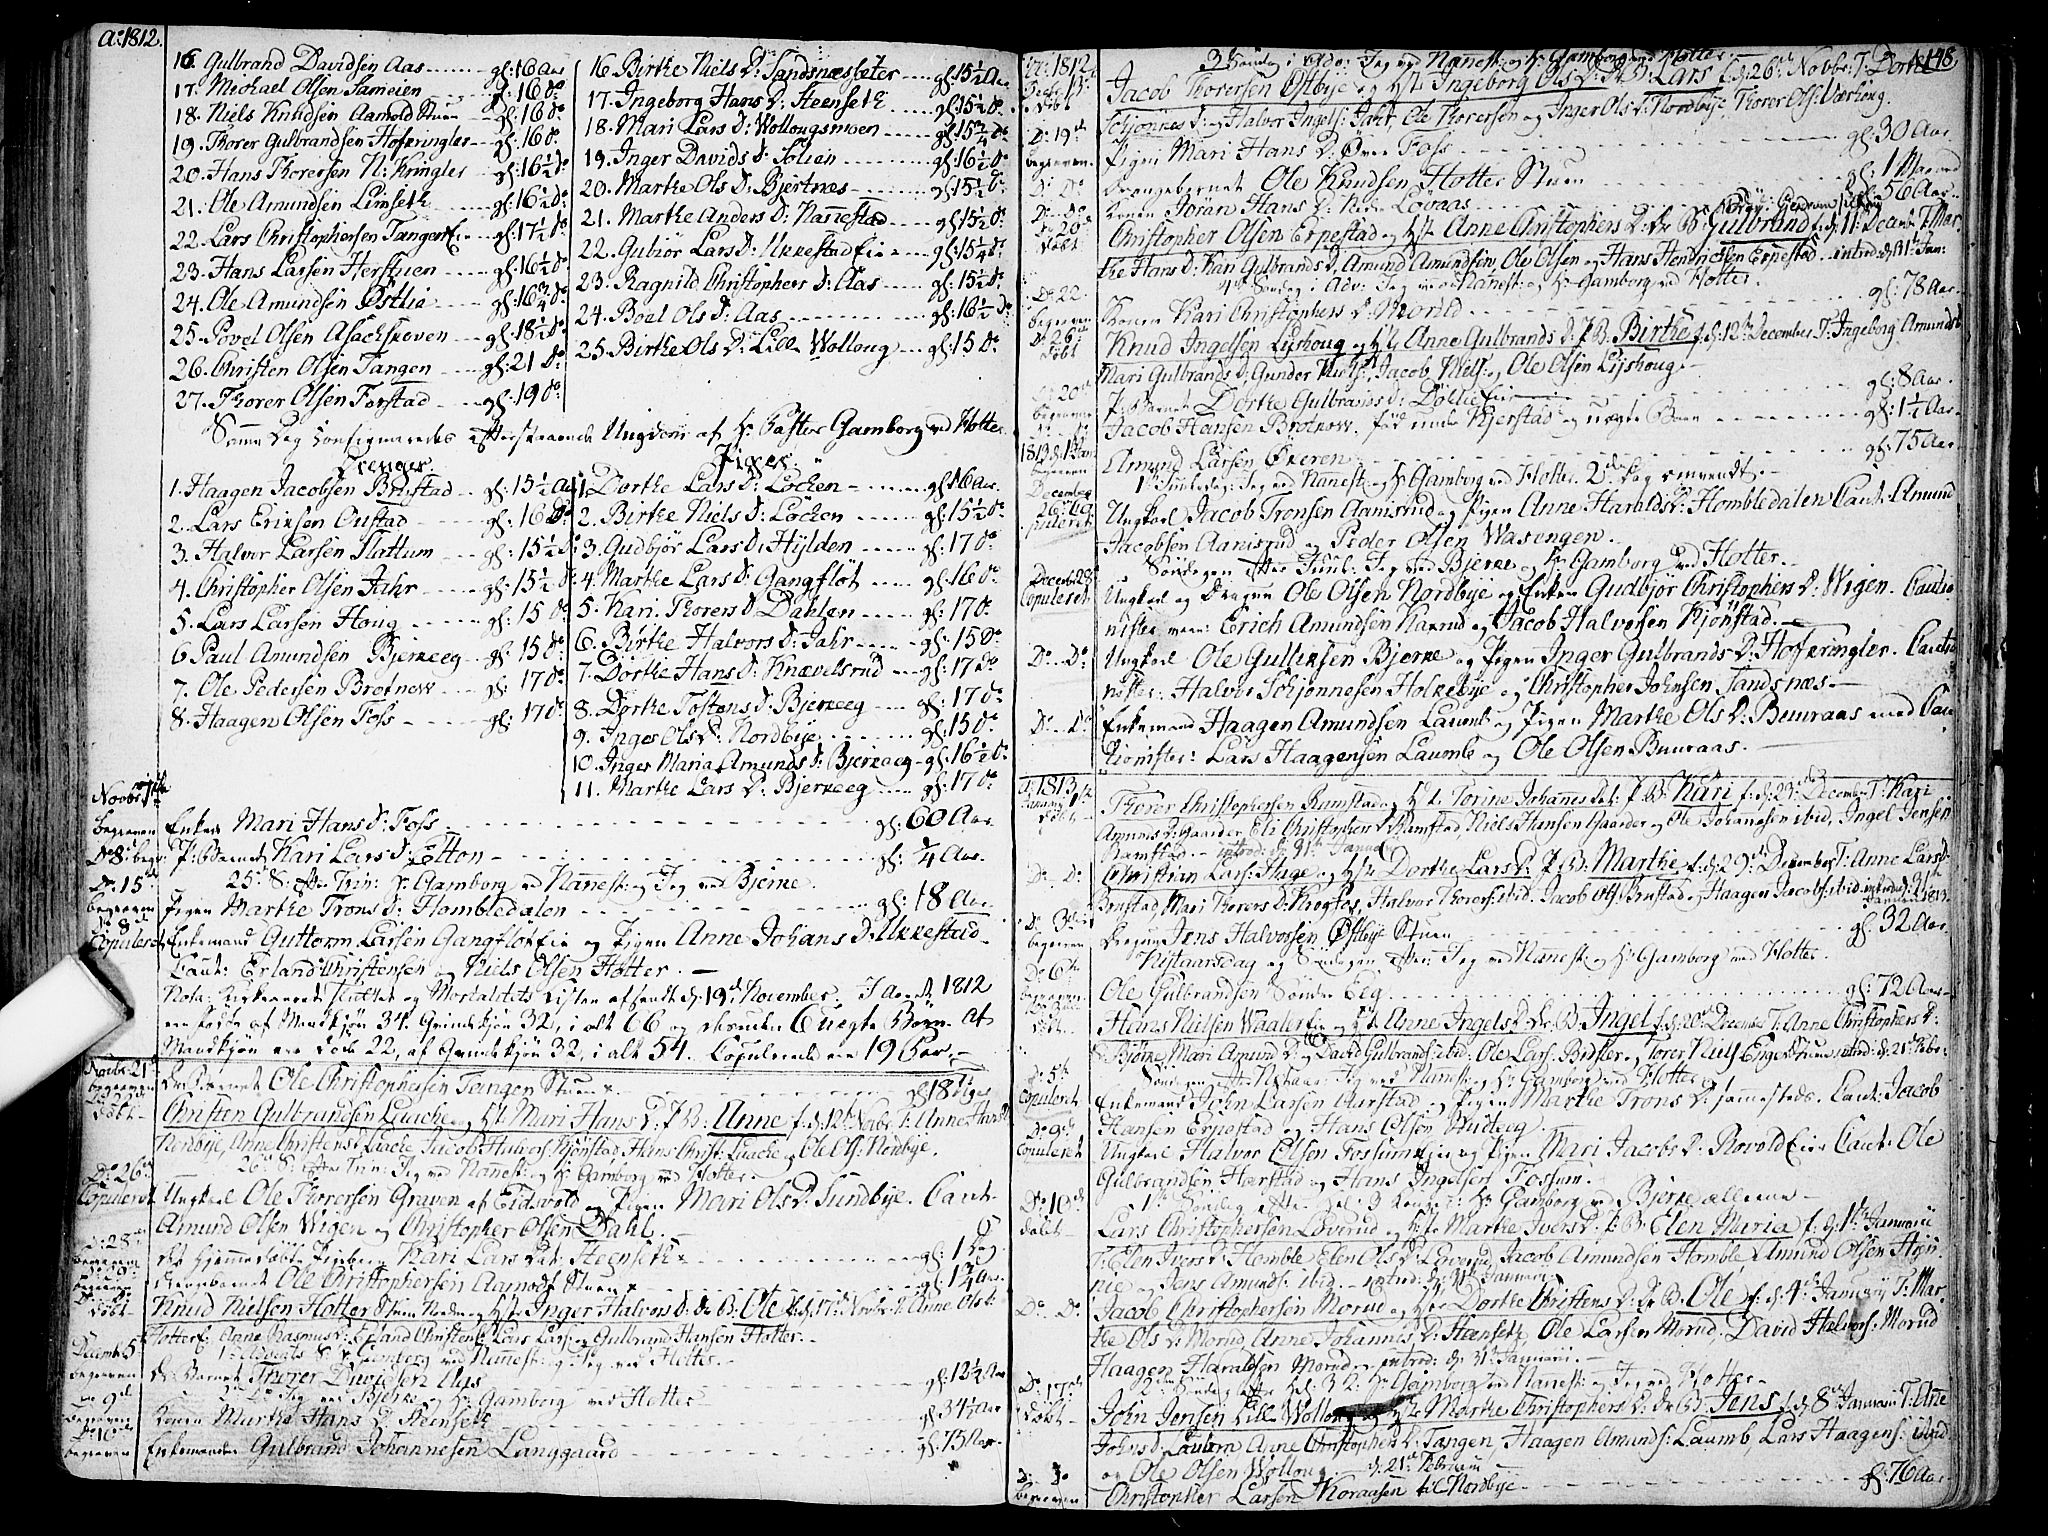 Ao 1812.
16. Gulbrand Davidsen Aas ...... gl: 16 Aar
17. Michael Olsen Sameien ...... gl: 16 do
18. Niels Knudsen Aamold Stuen gl: 16 do
19. Thorer Gulbrandsen Hofkringler gl: 16 do
20. Hans Thorersen N: Kringler gl: 16½ do
21. Ole Amundsen Limseth gl: 16½ do
22. Lars Christophersen Tangen Eie gl: 17½ do
23. Hans Larsen Herstuen gl: 16½ do
24. Ole Amundsen Østlie gl: 16¾ do
25. Povel Olsen Asachskoven gl: 18½ do
26. Christen Olsen Tangen gl: 21 do
27. Thorer Olsen Forstad gl: 19 do
16 Birthe Niels D: Sandsnæssæter gl: 15½ Aar
17. Ingeborg Hans D: Steenseth gl: 15½ do
18. Mari Lars D: Wollougsmoen gl: 15¾ do
19. Inger Davids D: Solien gl: 16½ do
20. Marthe Ols D: Bjertnes gl: 15½ do
21. Marthe Anders D: Nannestad gl: 15½ do
22. Gubiør Lars D: Ukkestad Eie gl: 15¼ do
23. Ragnild Christophers D: Aas gl: 15½ do
24. Boel Ols D: Aas gl: 16½ do
25. Birthe Ols D: Lille Wolloug gl: 15 do
Samme Dag confirmeredes efterstaaende Ungdom af Hr Pastor Gamborg ved Holter
Drenger
1. Haagen Jacobsen Brustad gl: 15½ Aar
2. Lars Eriksen Oustad gl: 16 do
3. Halvor Larsen Slattum gl: 15½ do
4. Christopher Olsen Jahr gl: 15½ do
5. Lars Larsen Houg gl: 15 do
6 Paul Amundsen Bjerkeeg gl: 15 do
7. Ole Pedersen Brotnow gl: 17 do
8. Haagen Olsen Foss gl: 17 do
Piger
1. Dorthe Lars D: Løcken gl: 16 Aar
2. Birthe Niels D: Løcken gl: 15½ do
3. Gudbjør Lars D: Hylden gl: 17 do
4. Marthe Lars D: Gangfløt gl: 16 do
5. Kari Thorers D: Dahlen gl: 17 do
6. Birthe Halvors D: Jahr gl: 15 do
7. Dorthe Hans D: Knævelsrud gl: 17 do
8. Dorthe Tostens D: Bjerkeeg gl: 17 do
9. Inger Ols D: Nordbye gl: 15 do
10. Inger Maria Amunds D: Bjerkeeg gl: 16½ do
11. Marthe Lars D: Bjerkeeg gl: 17 do
begraven Enken Mari Hans D: Foss gl: 60 Aar
Do 8 begr: P: Barnet Kari Lars D: Etton gl: ¾ Aar.
Do 15de 25d S. efter Trin: Hr Gamborg ved Nannest: og Jeg ved Bjerke.
begraven Pigen Marthe Trons D: Hombledalen gl: 18 Aar
Do 8d Copuleret Enkemand Guttorm Larsen Gangfløt Eie og Pigen Anne Johans D: Ukkestad
Caut: Erland Christensen og Niels Olsen Holter.
Nota: Kirkeaaret sluttet og Mortalitets Listen afsendt d: 19d November. I Aaret 1812
ere fødte af Mandkjøn 34. Qvindekjøn 32, i alt 66 og derunder 6 uægte Børn. Af
Mandkjøn ere døde 22, af Qvindekjøn 32, i alt 54. Copulerede ere 19 Par.
Novbr 21d
begraven Dr: Barnet Ole Christophersen Tangen Stuen gl: 18 Uger
døbt Christen Gulbrandsen Luacke og H: Mari Hans D: P: B: Anne f: d: 12te Novbr T: Anne Hans D:
Nordbye, Anne Christens D: Luacke, Jacob Halvors: Kjønstad, Hans Christ: Luacke og Ole Ols: Nordbye.
Do 26d 26d S: efter Trin: Jeg ved Nannest: og Hr Gamborg ved Holter
Copuleret Ungkarl Ole Thorersen Graven af Eidsvold og Pigen Mari Ols D: Sundbye. Caut:
Amund Olsen Wigen og Christopher Olsen Dahl.
Do 28de begraven det hjemmedøbte Pigeb: Kari Lars D: Steenseth gl: 1 Dag
Drengebarnet Ole Christophersen Aamodt Stuen gl: 1½ Aar
døbt Knud Nielsen Holter Stuen og H: Inger Halvors D: Dr B: Ole f: d: 17d Novbr T: Anne Ols D:
Holter, Anne Rasmus D: Erland Christens: Lars Lars: og Gulbrand Hansen Holter.
Decembr 5 1ste Advents S. Hr Gamborg ved Nannest: og Jeg ved Holter.
begraven Dr: Barnet Thorer Davidsen Aas gl: 12¼ Aar
Do 9d 2den Do Jeg ved Bjerke og Hr Gamborg ved Holter
begraven Konen Marthe Hans D: Steenseth gl: 34½ Aar
Do 10de begraven Enkemanden Gulbrand Johannesen Langgaard gl: 75 Aar.
Ao 1812. 148.
3 Søndag i Adv: Jeg ved Nannest: og Hr Gamborg ved Holter
døbt Jacob Thorersen Østbye og H: Ingeborg Ols D: Dr B: Lars f: d: 26d Novbr. T: Dorthe
Schjønnes D: og Halvor Ingels: Jahr, Ole Thorersen og Inger Ols D: Nordbye, Thorer Ols: Værhoug.
Do 19de begraven Pigen Mari Hans D: Øvre Foss gl: 30 Aar
Do Do Drengebarnet Ole Knudsen Holter Stuen gl: 1 Maaned
Do Do Konen Jøran Hans D: Nedre Løvaas gl: 56 Aar
Do 20d døbt Christopher Olsen Erpestad og H: Anne Christophers D: Dr B: Gulbrand f: d: 11d Decembr T: Mar
the Hans D: Kari Gulbrands D: Amund Amundsen, Ole Olsen og Hans Hendrichsen Erpestad. introd: d: 31d Jan:
4de Søndag i Adv: Jeg ved Nannest: og Hr Gamborg ved Holter.
Do 22. begraven Konen Kari Christophers D: Morud gl: 78 Aar.
Do 26d døbt Knud Ingelsen Lyshoug og H: Anne Gulbrands D: P B: Birthe f: d: 12te December T: Ingeborg Amunds D:
Mari Gulbrands D: Gunder Niels: Jacob Niels: og Ole Olsen Lyshoug.
Do 20de begraven P: Barnet Dorthe Gulbrands D: Døllie Eie gl: 8 Aar.
Jacob Hansen Brotnow. fød under Kjerstad og uægte Barn gl: 1¼ Aar.
1813 d: 1 Jan begraven Amund Larsen Økeren gl: 75 Aar
1ste Juuledag: Jeg ved Nannest: og Hr Gamborg ved Holter. 2den Dag omvendt.
December 26de Copuleret Ungkarl Jacob Tronsen Aamsrud og Pigen Anne Haralds D: Hombledalen Caut: Amund
Jacobsen Aamsrud og Peder Olsen Wasengen.
Søndagen efter Juul: Jeg ved Bjerke og Hr Gamborg ved Holter.
Decembr 28 Copuleret Ungkarl og Dragon Ole Olsen Nordbye og Enken Gudbjør Christophers D: Wigen. Cautio
nister vare: Erich Amundsen Karrud og Jacob Halvorsen Kjønstad.
Do Do Ungkarl Ole Gulliksen Bjerke og Pigen Inger Gulbrands D: Hofkringler. Cautio
nister: Halvor Schjønnesen Holkebye og Christopher Johnsen Sandsnæs.
Do Do Enkemand Haagen Amundsen Laumb og Pigen Marthe Ols D: Buuraas med Cau
tionister: Lars Haagensen Laumb og Ole Olsen Buuraas.
Ao 1813
Januar 1ste døbt Thorer Christophersen Ramstad og H: Torine Johannes Dat: P: B: Kari f: d: 23de December T: Kari
Amunds D: Gaarder, Eli Christophers D: Ramstad, Niels Hansen Gaarder og Ole Johannesen ibid, Ingel Jensen
Ramstad. introd: d: 31te Januar
Do Do Christian Lars: Huge og H: Dorthe Lars D: P B: Marthe f: d: 29d December T: Anne Lars D:
Brustad, Mari Thorers D: Krogfos, Halvor Thorers: ibid. Jacob Ols: Brustad og Haagen Jacobs: ibid. introd: d: 31te Januar 1813.
Do 3die begraven Dragon Jens Halvorsen Østbye Stuen gl: 32 Aar
Nytaarsdag og Søndagen efter: Jeg ved Nannest: og Hr Gamborg ved Holter.
Do 6te begraven Ole Gulbrandsen Søndre Eeg gl: 72 Aar
døbt Hans Nielsen Waaler Eie og H: Anne Ingels D: Dr: B: Ingel f: d: 20de December T: Anne Christophers D:
Bjørke, Mari Amunds D: og David Gulbrands: ibid. Ole Lars: Bidsler og Torer Niels: Enge Stuen introd: d: 21de Febr.
Søndagen efter Nytaar: Jeg ved Nannest: og Hr Gamborg ved Holter
Copuleret Enkemand John Larsen Hurstad og Pigen Marthe Trons D: sammesteds. Caut: Jacob
Hansen Erpestad og Hans Olsen Hudeeg.
Do 9de Copuleret Ungkarl Halvor Olsen Fossum Eie og Pigen Mari Jacobs D: Borold Eie Caut: Ole
Gulbrandsen Harstad og Hans Ingelsen Fossum.
1ste Søndag efter Hel: 3 Konger: Hr Gamborg ved Bjerke allene
Do 10de døbt Lars Christophersen Løverud og H: Marthe Ivers D: P: B: Elen Maria f: d: 1te Januarii
T: Elen Ivers D: Homble, Elen Ols D: Løverud, Jacob Amundsen Homble, Amund Olsen Høy
nie og Jens Amunds: ibid. introd: d: 31te Januar
Do Do Jacob Christophersen Morud og H: Dorthe Christens D: Dr B: Ole f: d: 4de Januarii T: Mar
the Ols D: Morud, Anne Johannes D: Steenseth, Ole Larsen Morud, David Halvors: Morud
Haagen Haraldsen Morud introd: d: 31te Januarii.
2den Søndag efter Hel: 3 K: Hr Gamborg ved Nannest: og Jeg ved Holter
Do 17de døbt John Jensen Lille Wolloug og H: Marthe Christophers D: Dr B: Jens f: d: 8de Januarii T: Anne
Johns D: Laubern, Anne Christophers D: Tangen, Haagen Amunds: Laumb, Lars Haagens: ibid
og Ole Olsen Wolloug. d: 21de Februarii
begraven Christopher Larsen Koraasen til Nordbye gl: 76 Aar